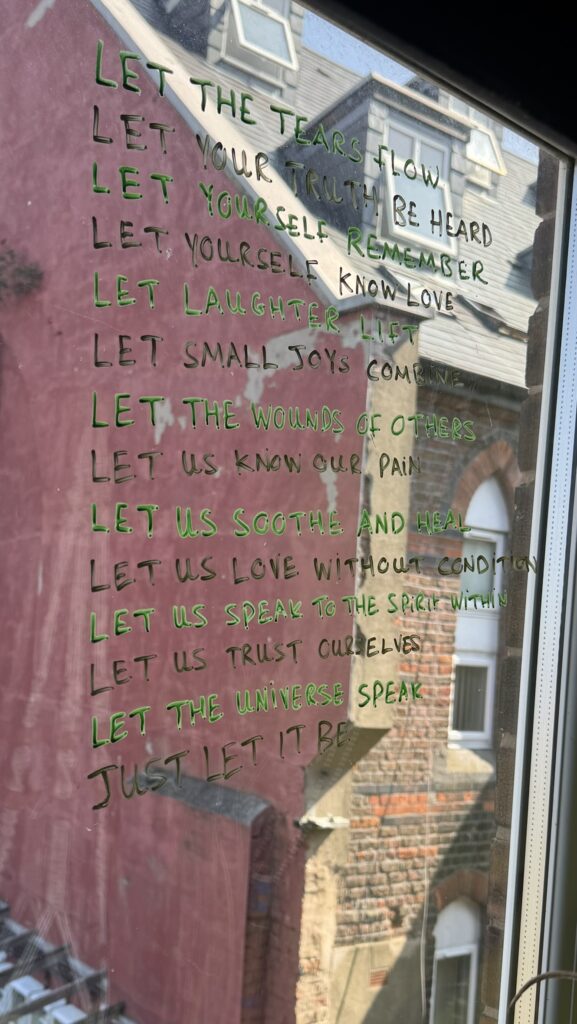 LET THE TEARS FLOW
LET YOUR TRUTH BE HEARD
LET YOURSELF REMEMBER
LET YOURSELF KNOW LOVE
LET LAUGHTER LIFT
LET SMALL JOYS COMBINE
LET THE WOUNDS OF OTHERS
LET US KNOW OUR PAIN
LET US SOOTHE AND HEAL
LET US LOVE WITHOUT CONDITION
LET US SPEAK TO THE SPIRIT WITHIN
LET US TRUST OURSELVES
LET THE UNIVERSE SPEAK
JUST LET IT BE